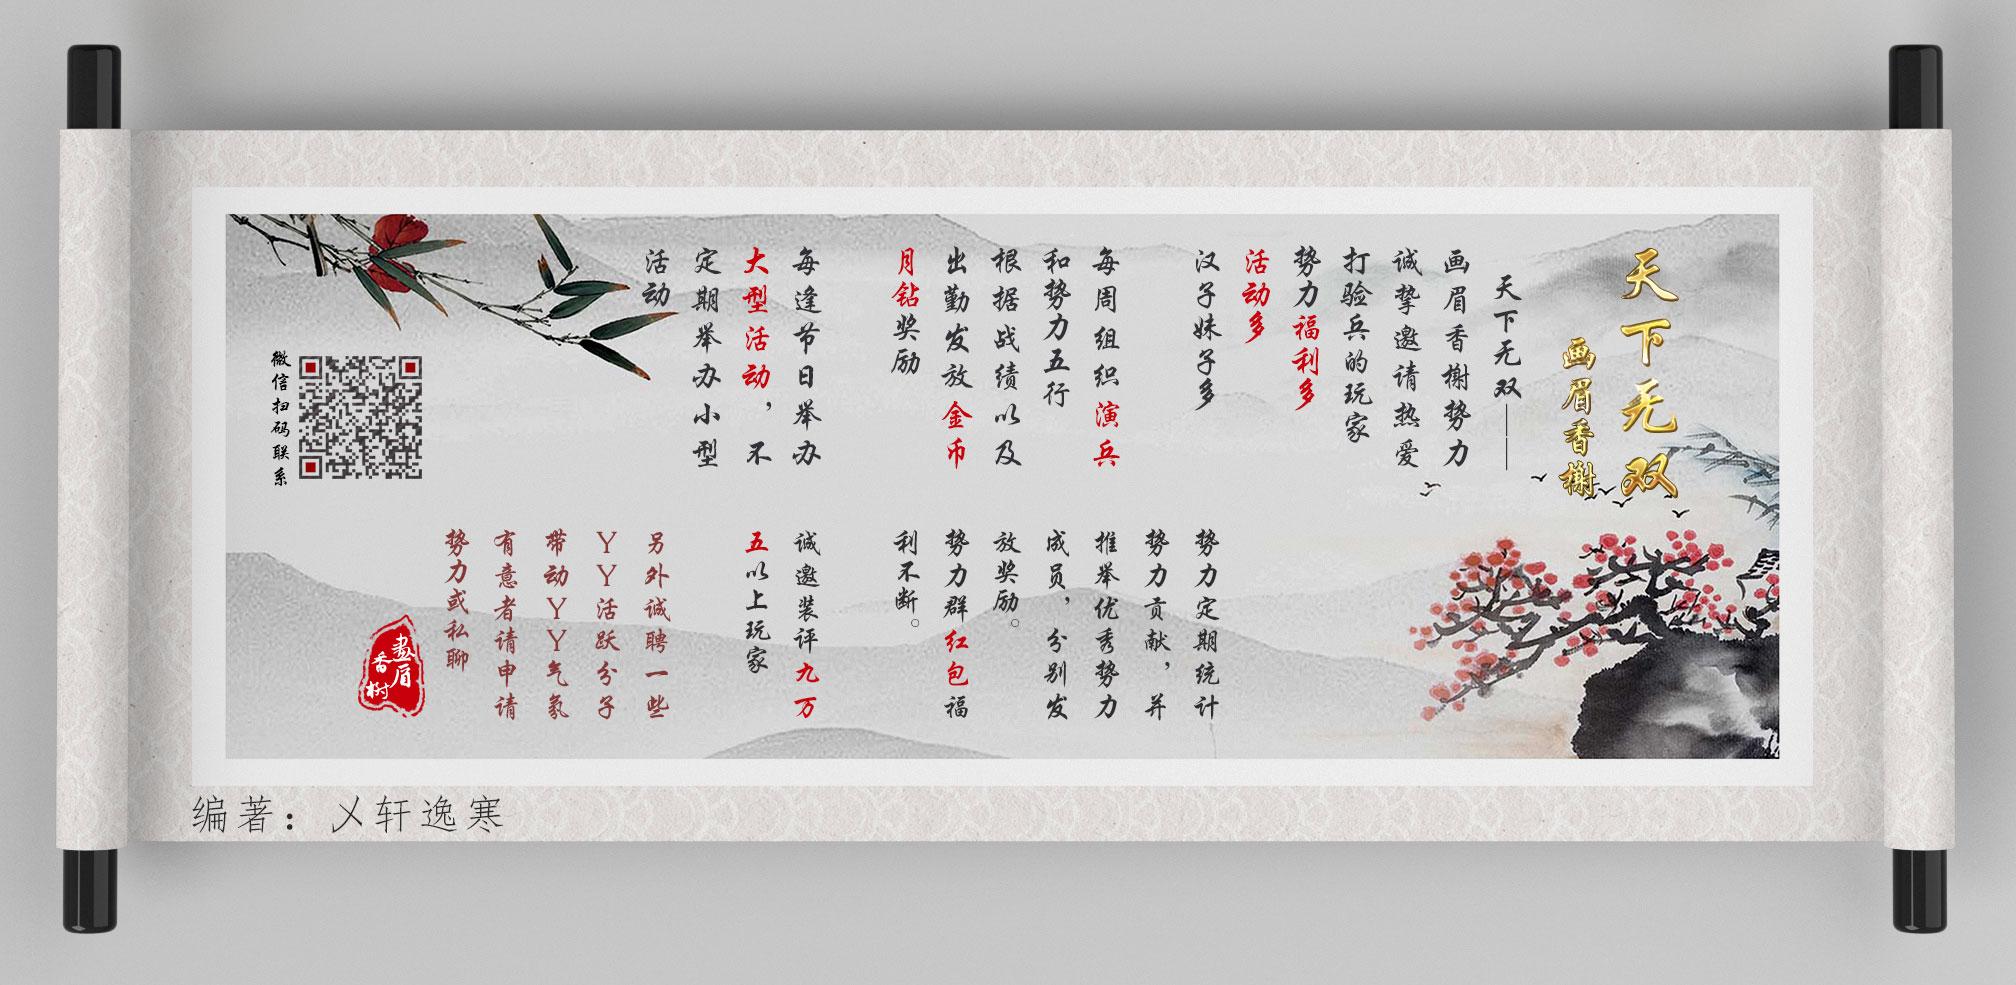 天下无双
画眉香榭
天下无双——
画眉香榭势力
诚挚邀请热爱
打验兵的玩家
势力福利多
活动多
汉子妹子多
每周组织演兵
和势力五行
根据战绩以及
出勤发放金币
月钻奖励
每逢节日举办
大型活动，不
定期举办小型
活动
势力定期统计
势力贡献，并
推举优秀势力
成员，分别发
放奖励。
势力群红包福
利不断。
诚邀装评九万
五以上玩家
另外诚聘一些
YY活跃分子
带动YY气氛
有意者请申请
势力或私聊
画眉
香榭
微信扫码联系
编著：乂轩逸寒